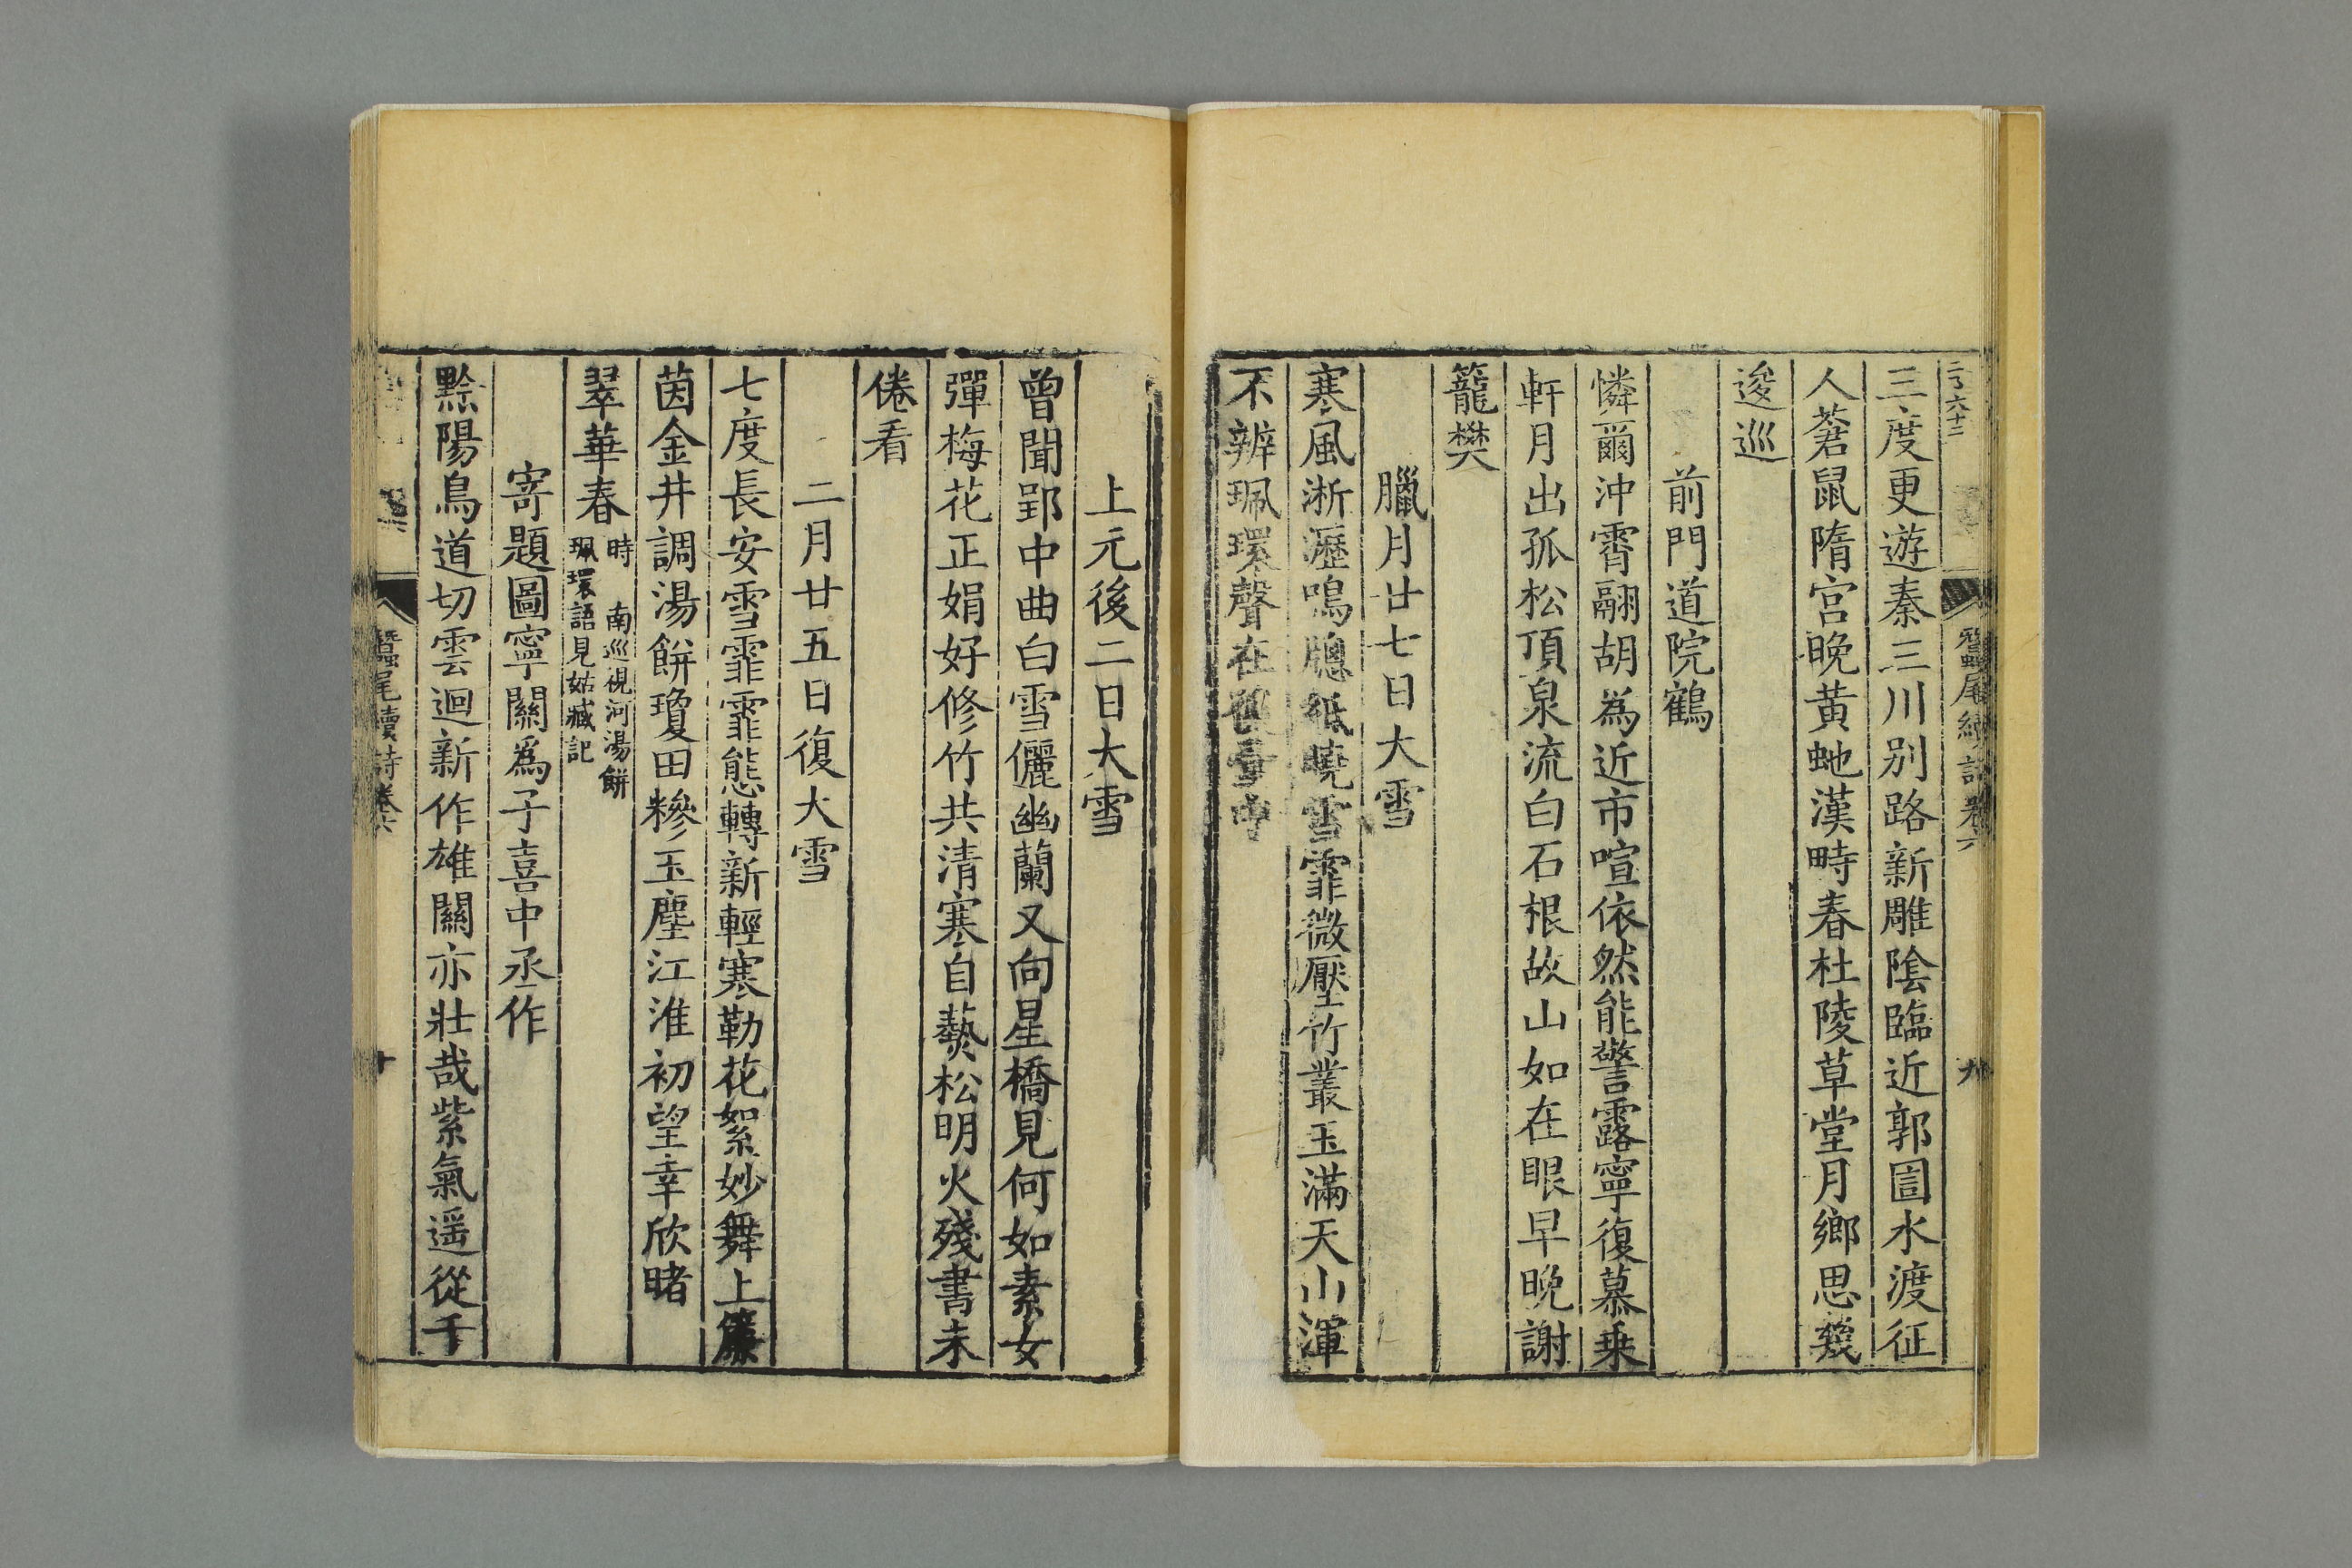 三度更遊秦三川别路新雕隂臨近郭圁水渡征
人蒼鼠隋宫晚黄虵漢畤春杜陵草堂月鄉思幾
逡巡
前門道院鶴
憐爾沖霄翮胡為近市喧依然能警露寧復慕乗
軒月出孤松頂泉流白石根故山如在眼早晚謝
籠樊
臘月廿七日大雪
寒風淅瀝鳴牕紙曉雪霏微壓竹叢玉滿天山渾
不辨珮環聲在
上元後二日大雪
曾聞郢中曲白雪儷幽蘭又向星橋見何如素女
彈梅花正娟好修竹共清寒自爇松明火殘書未
倦看
二月廿五日復大雪
七度長安雪霏霏態轉新輕寒勒花絮妙舞上簾
茵金井調湯餅瓊田糝玉塵江淮初望幸欣睹
翠華春
時 南巡視河湯餅
珮環語見姑臧記
寄題圖寧關為子喜中丞作
黔陽鳥道切雲迴新作雄關亦壯哉紫氣遥從千
蠶尾續詩卷六
十
蠶尾續詩卷六
九